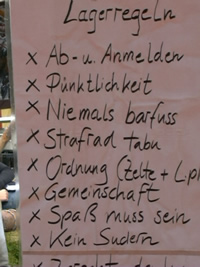 Lagerregeln
x Ab- u. Anmelden
x Pünktlichkeit
x Niemals barfuss
x Strafrad tabu
x Ordnung (Zelte + L.pl
x Gemeinschaft
x Spaß muss sein
x Kein Sudern